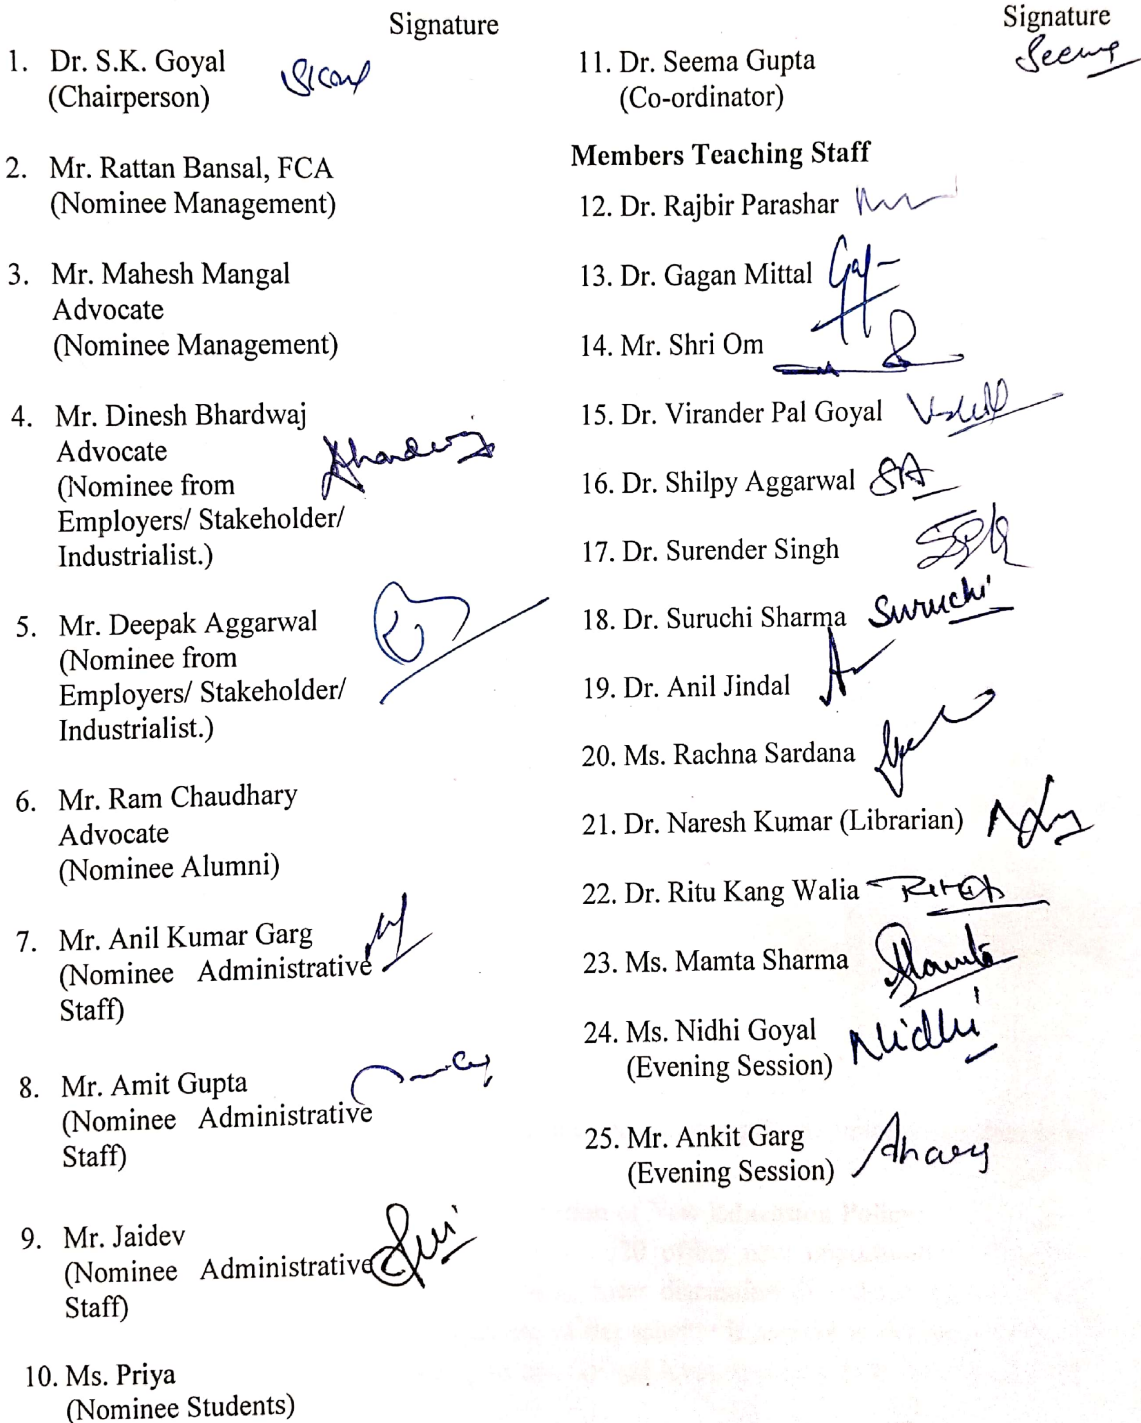 Signature
1. Dr. S.K. Goyal
(Chairperson)
2. Mr. Rattan Bansal, FCA
(Nominee Management)
3. Mr. Mahesh Mangal
Advocate
(Nominee Management)
4. Mr. Dinesh Bhardwaj
Advocate
(Nominee from
Employers/ Stakeholder/
Industrialist.)
5. Mr. Deepak Aggarwal
(Nominee from
Employers/ Stakeholder/
Industrialist.)
6. Mr. Ram Chaudhary
Advocate
(Nominee Alumni)
7. Mr. Anil Kumar Garg
(Nominee Administrative
Staff)
8. Mr. Amit Gupta
(Nominee Administrative
Staff)
9. Mr. Jaidev
(Nominee Administrative
Staff)
10. Ms. Priya
(Nominee Students)
Signature
11. Dr. Seema Gupta Seema
(Co-ordinator)
Members Teaching Staff
12. Dr. Rajbir Parashar
13. Dr. Gagan Mittal
14. Mr. Shri Om
15. Dr. Virander Pal Goyal
16. Dr. Shilpy Aggarwal SA
17. Dr. Surender Singh
18. Dr. Suruchi Sharma Suruchi
19. Dr. Anil Jindal
20. Ms. Rachna Sardana
21. Dr. Naresh Kumar (Librarian)
22. Dr. Ritu Kang Walia
23. Ms. Mamta Sharma Mamta
24. Ms. Nidhi Goyal Nidhi
(Evening Session)
25. Mr. Ankit Garg
(Evening Session)